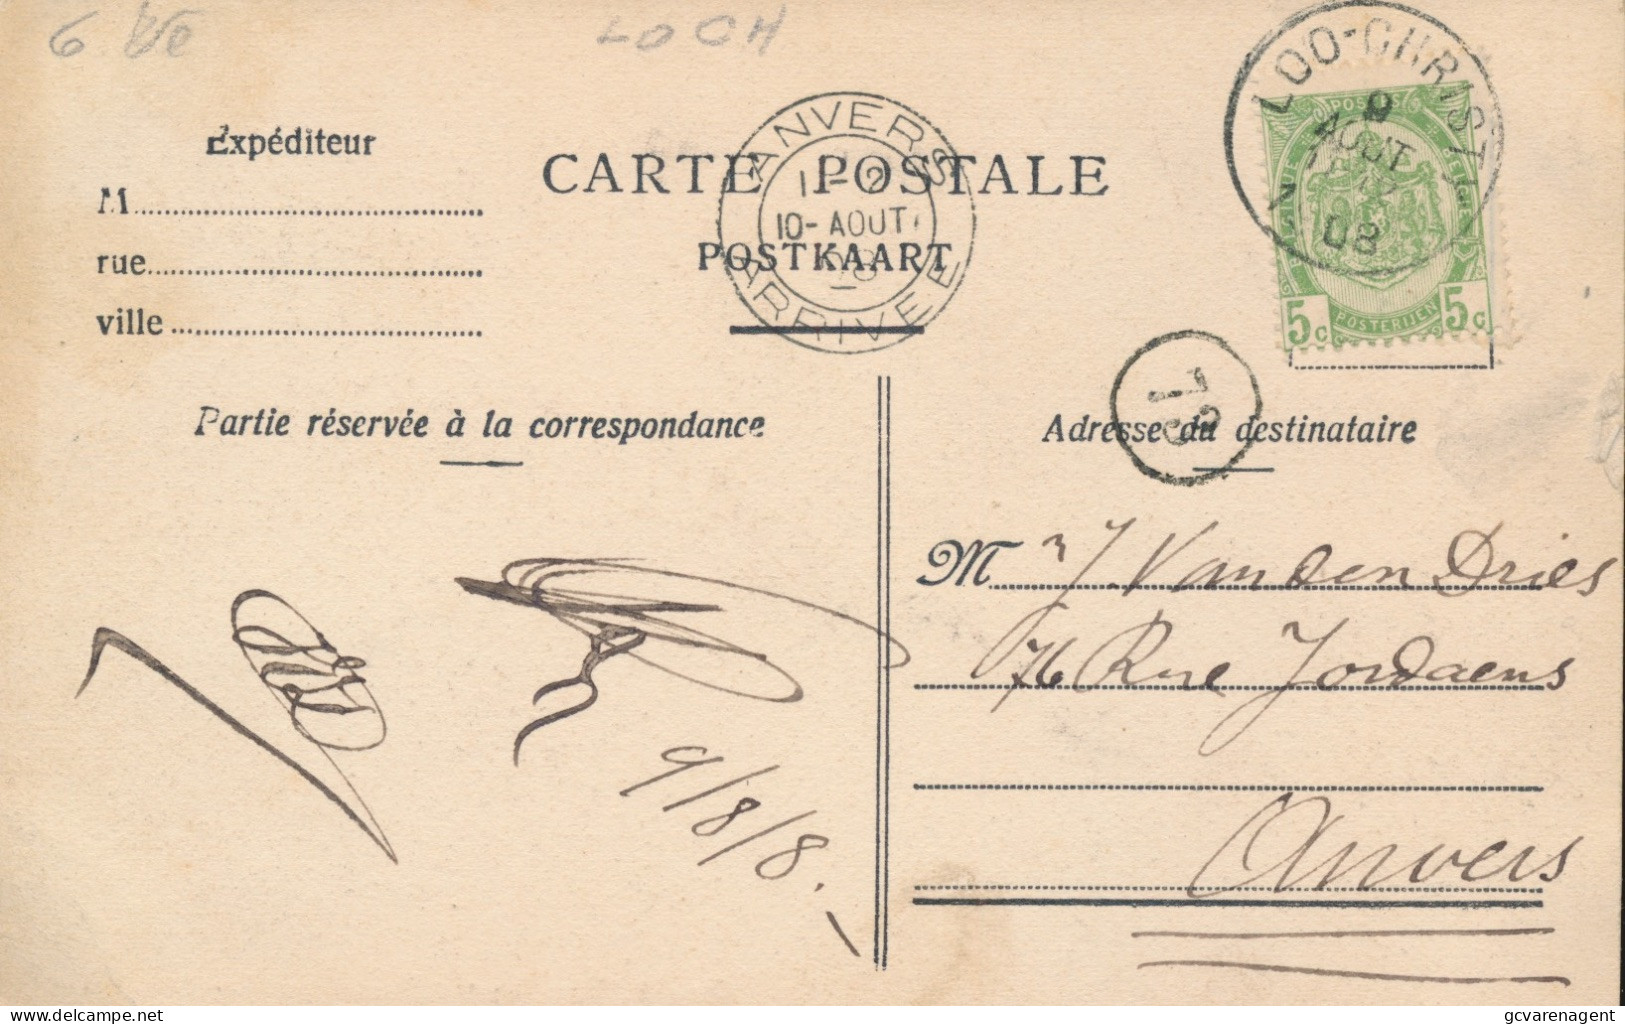 6 Ve
LOCH
LOO-CHRISTI
9
AOUT
08
N
POSTES
BELGIQUE BELGIË
5c 5c
POSTERIJEN
ANVERS
10-AOUT
08
ARRIVÉE
Expéditeur
CARTE POSTALE
POSTKAART
M
rue
ville
Partie réservée à la correspondance
Adresse du destinataire
M J. Van den Dries
76 Rue Jordaens
Anvers
9/8/8. –
delcampe.net
gcvarenagent